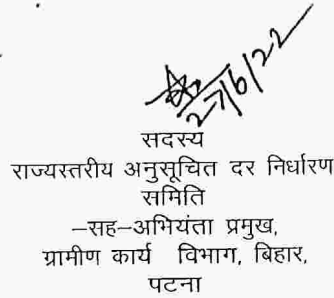 27/6/22
सदस्य
राज्यस्तरीय अनुसूचित दर निर्धारण
समिति
–सह–अभियंता प्रमुख,
ग्रामीण कार्य विभाग, बिहार,
पटना